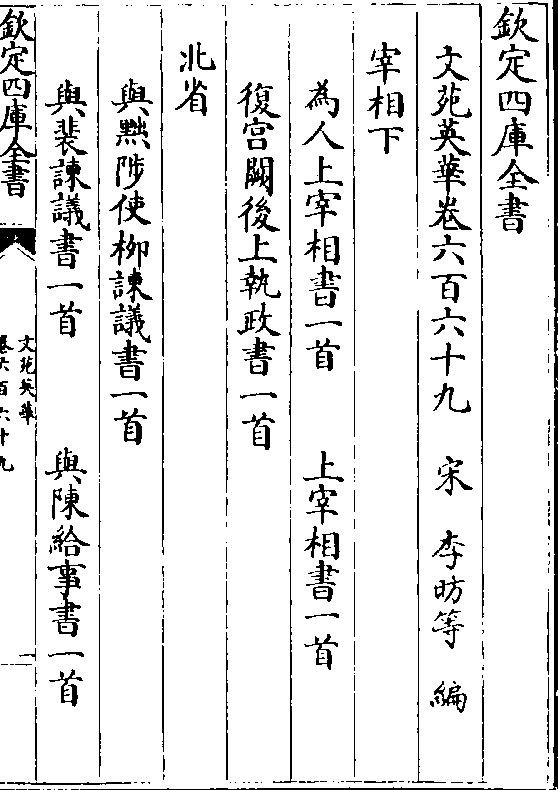 欽定四庫全書
文苑英華卷六百六十九　宋　李昉等　編
宰相下
為人上宰相書一首　上宰相書一首
復宫闕後上執政書一首
北省
與黜陟使柳諫議書一首
與裴諫議書一首　與陳給事書一首
欽定四庫全書
文苑英華
卷六百六十九
一